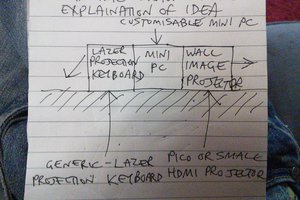 EXPLAINATION OF IDEA
CUSTOMISABLE MINI PC
LAZER
PROJECTION
KEYBOARD
MINI
PC
WALL
IMAGE
PROJECTOR
GENERIC-LAZER
PROJECTION KEYBOARD
PICO OR SMALL
HDMI PROJECTOR